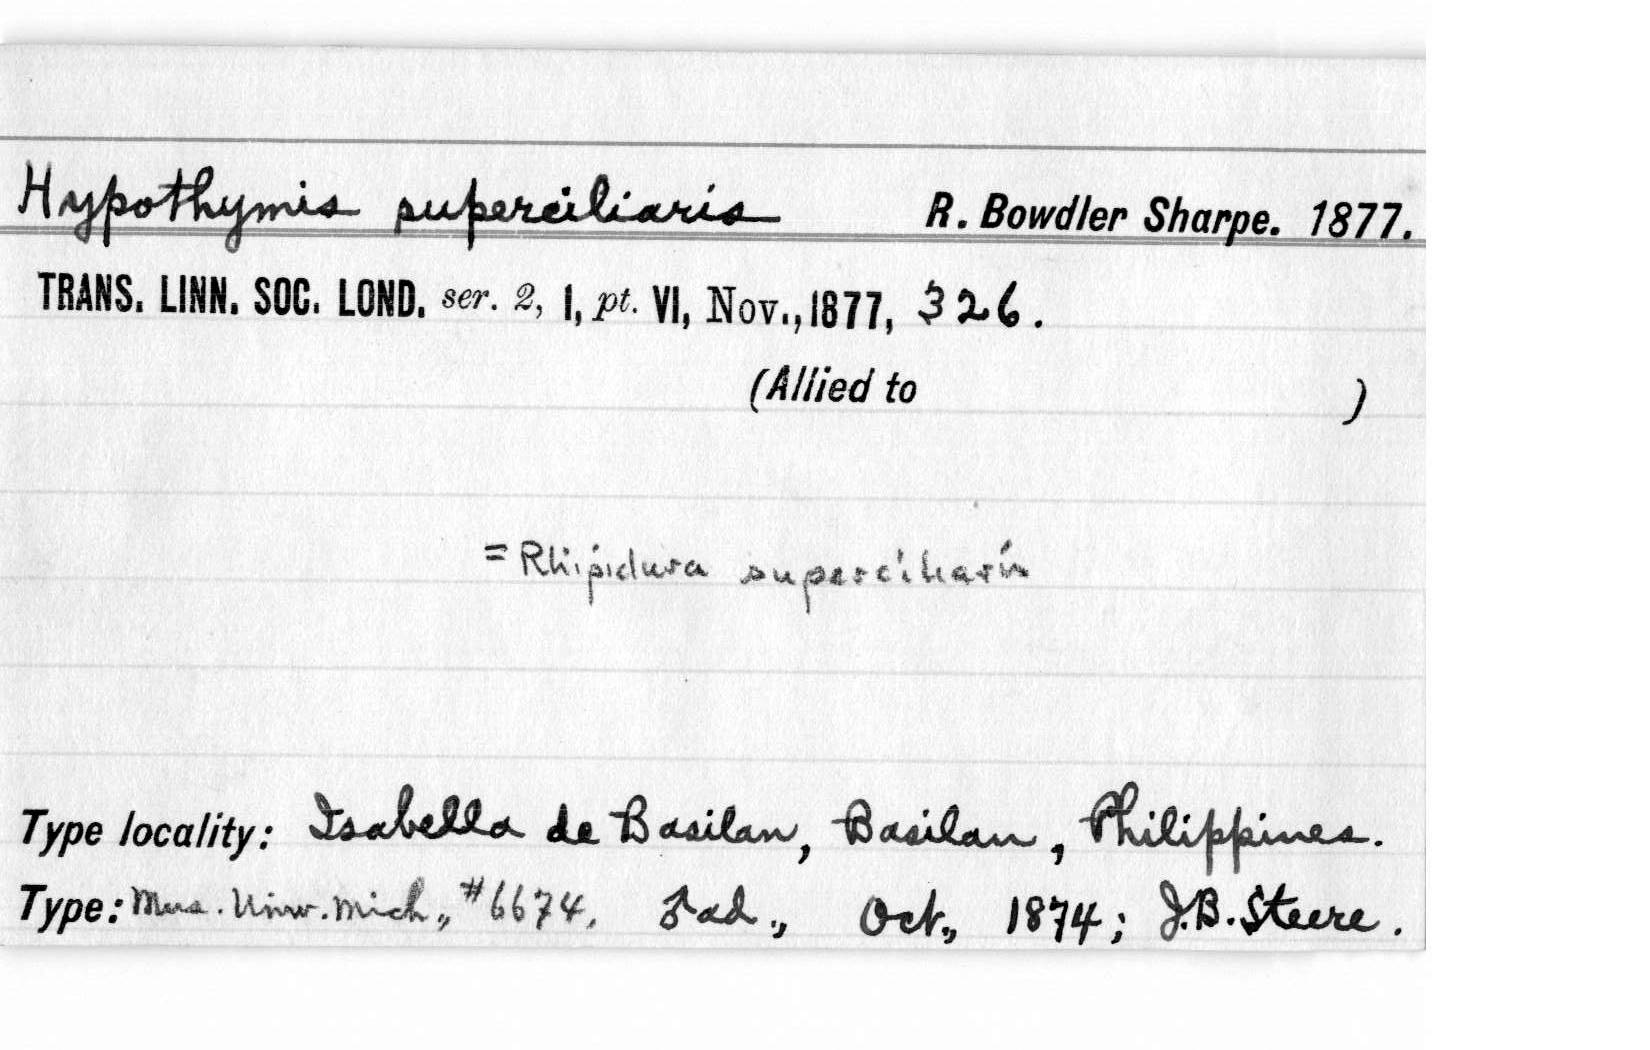 Hypothymis superciliaris R. Bowdler Sharpe. 1877.
TRANS. LINN. SOC. LOND. ser. 2, 1, pt. VI, Nov., 1877, 326.
(Allied to )
= Rhipidura superciliaris
Type locality: Isabella de Basilan, Basilan, Philippines.
Type: Mus. Univ. Mich., #6674. ♂ad., Oct., 1874; J.B. Steere.